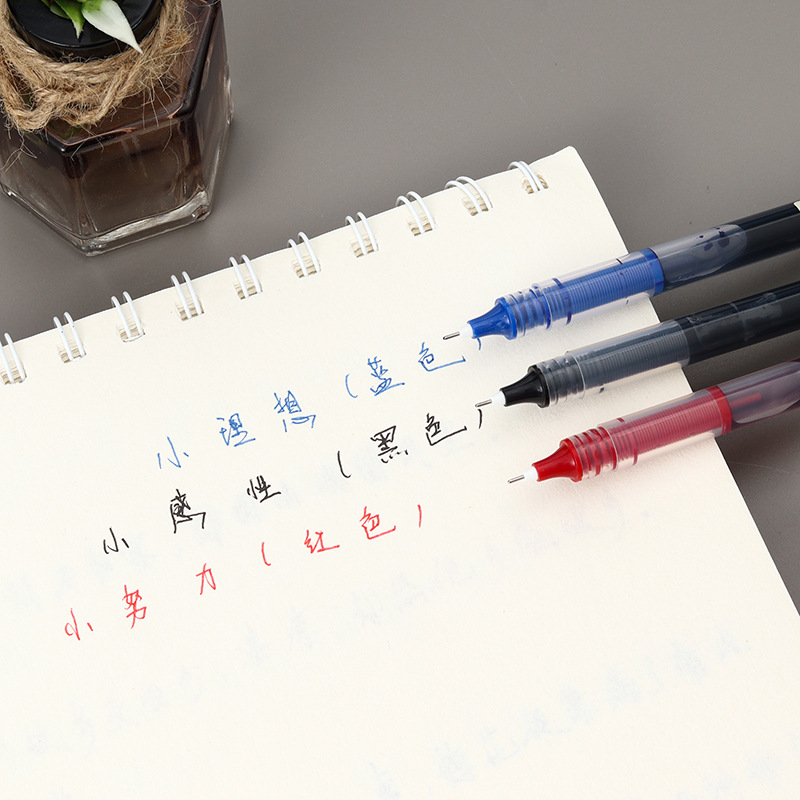 小理想(蓝色)
小感性(黑色)
小努力(红色)